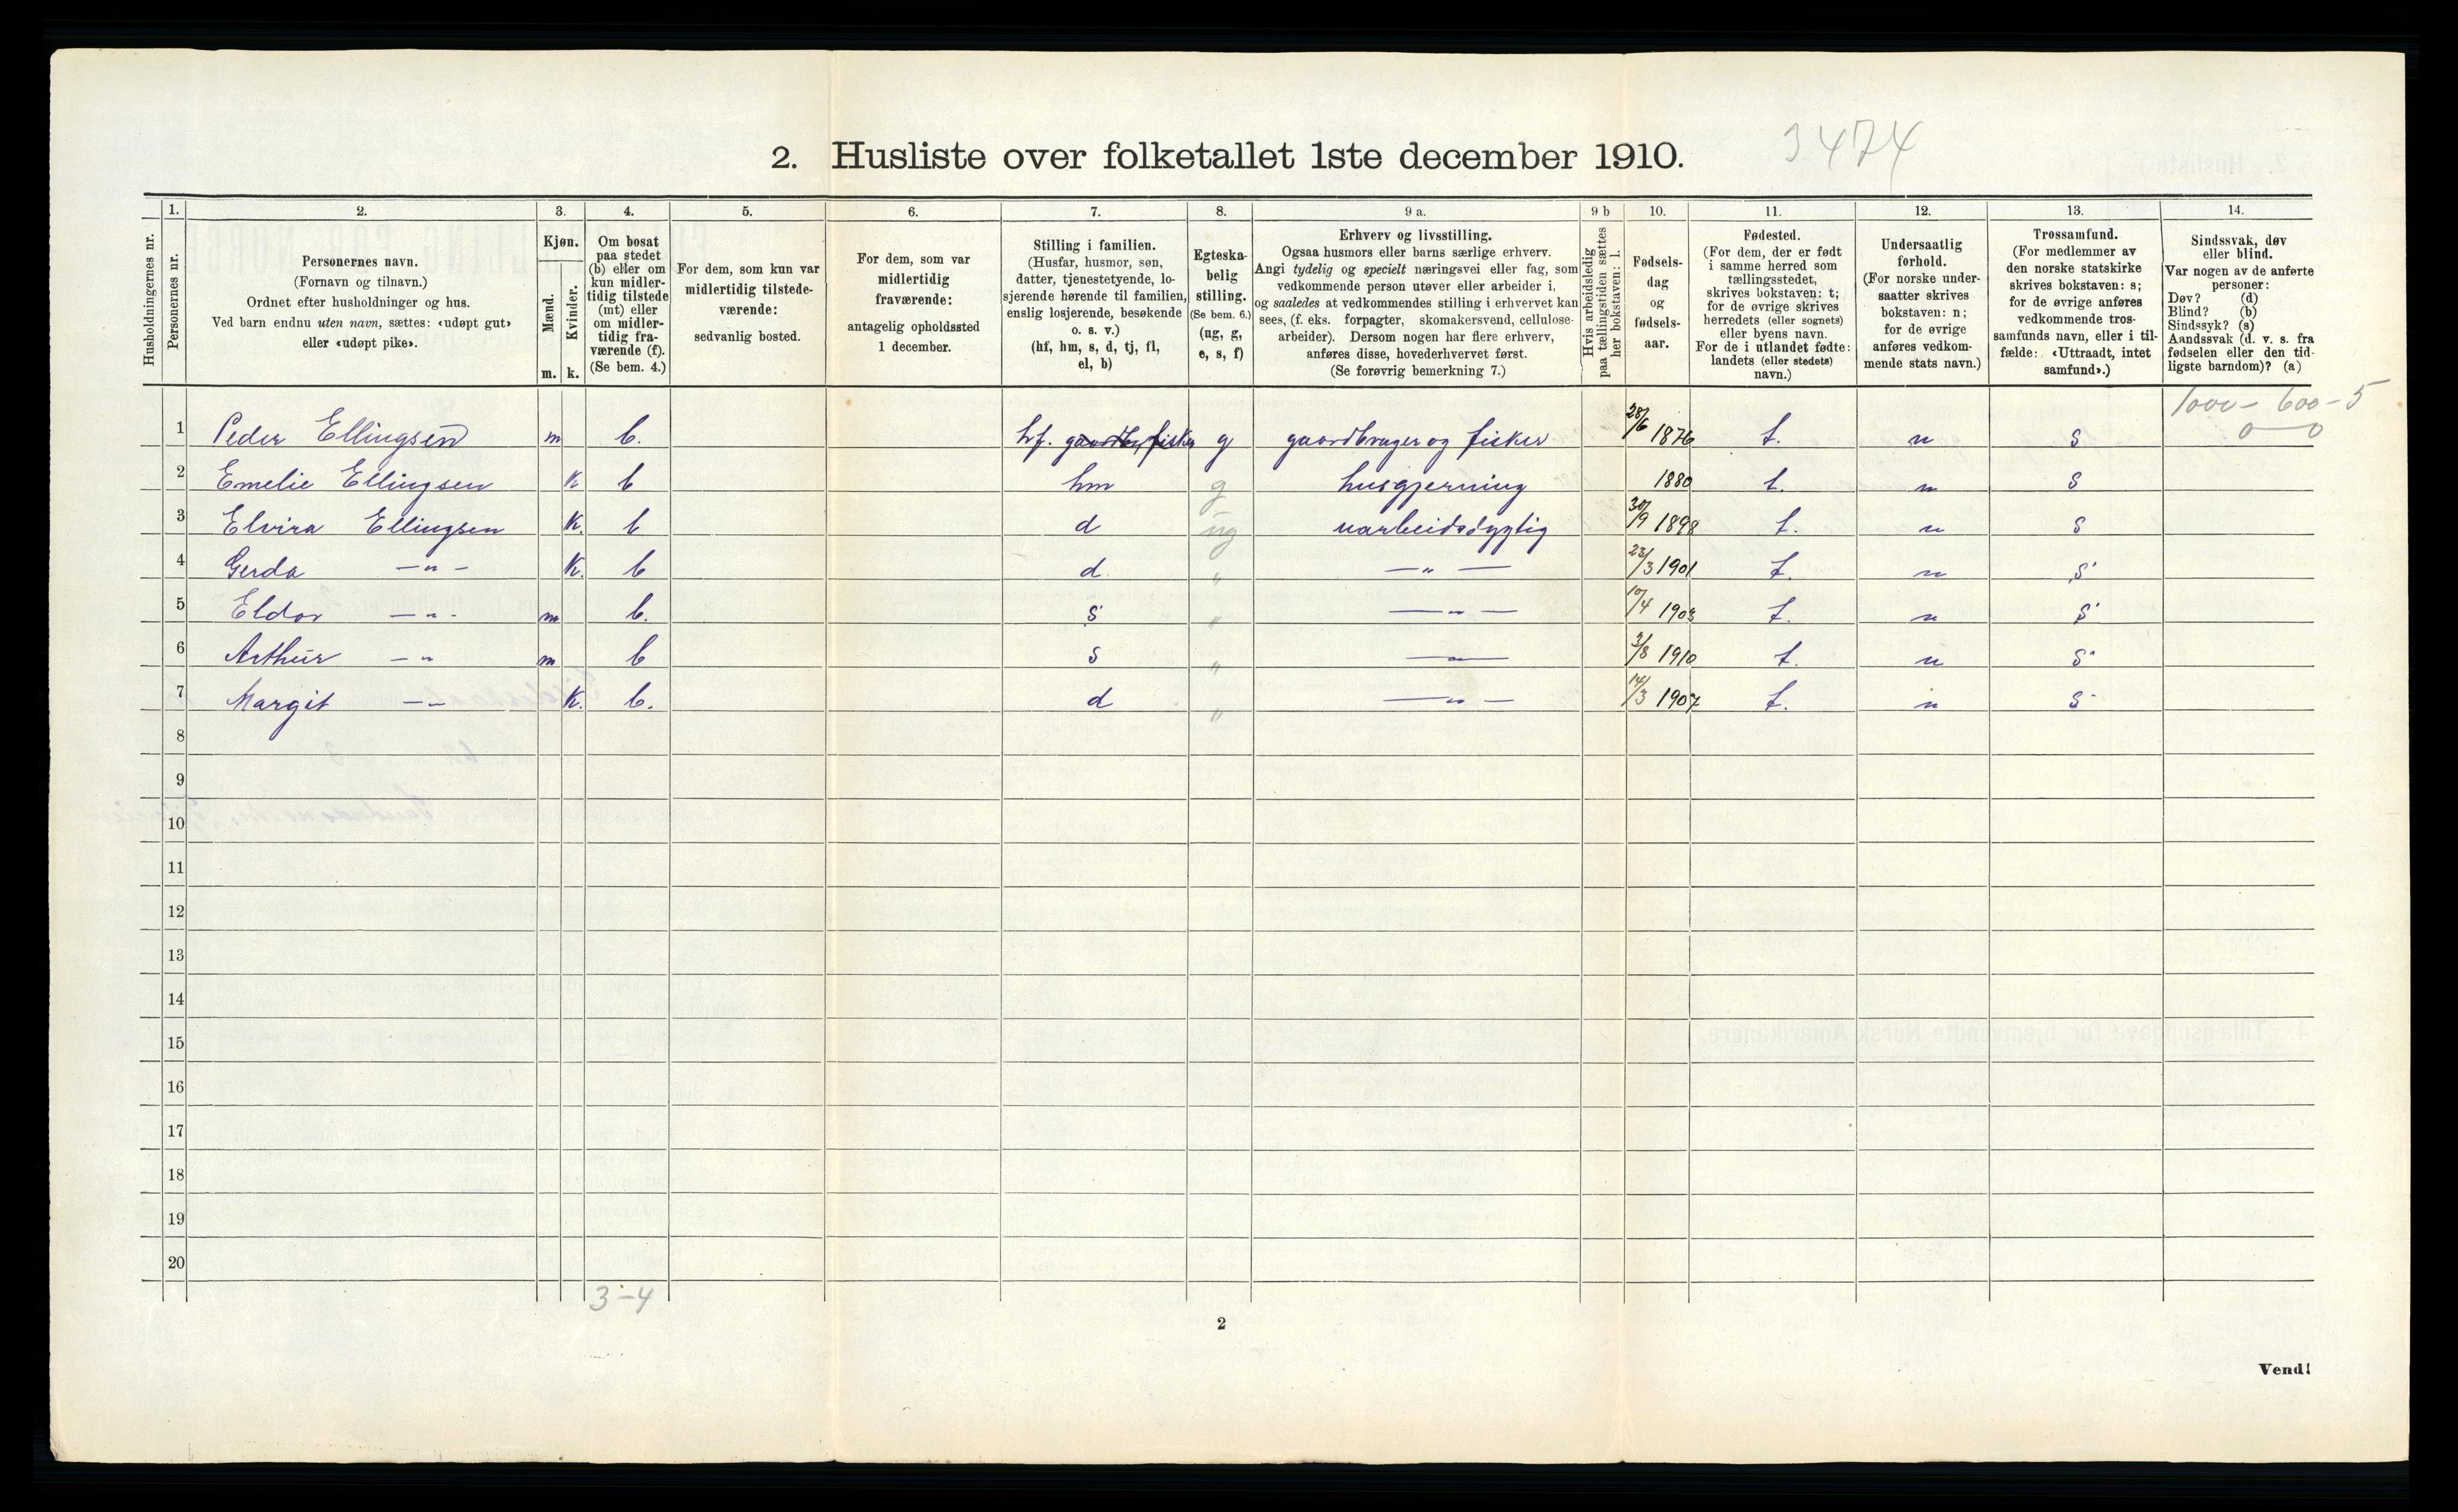 3474
2. Husliste over folketallet 1ste december 1910.
Husholdningernes nr.
1. Personernes nr.
2. Personernes navn.
(Fornavn og tilnavn.)
Ordnet efter husholdninger og hus.
Ved barn endnu uten navn, sættes: «udøpt gut»
eller «udøpt pike».
3. Kjøn.
Mænd. m.
Kvinder. k.
4. Om bosat
paa stedet
(b) eller om
kun midler-
tidig tilstede
(mt) eller
om midler-
tidig fra-
værende (f).
(Se bem. 4.)
5. For dem, som kun var
midlertidig tilstede-
værende:
sedvanlig bosted.
6. For dem, som var
midlertidig
fraværende:
antagelig opholdssted
1 december.
7. Stilling i familien.
(Husfar, husmor, søn,
datter, tjenestetyende, lo-
sjerende hørende til familien,
enslig losjerende, besøkende
o. s. v.)
(hf, hm, s, d, tj, fl,
el, b)
8. Egteska-
belig
stilling.
(Se bem. 6.)
(ug, g,
e, s, f)
9 a. Erhverv og livsstilling.
Ogsaa husmors eller barns særlige erhverv.
Angi tydelig og specielt næringsvei eller fag, som
vedkommende person utøver eller arbeider i,
og saaledes at vedkommendes stilling i erhvervet kan
sees, (f. eks. forpagter, skomakersvend, cellulose-
arbeider). Dersom nogen har flere erhverv,
anføres disse, hovederhvervet først.
(Se forøvrig bemerkning 7.)
9 b Hvis arbeidsledig
paa tællingstiden sættes
her bokstaven: l.
10. Fødsels-
dag
og
fødsels-
aar.
11. Fødested.
(For dem, der er født
i samme herred som
tællingsstedet,
skrives bokstaven: t;
for de øvrige skrives
herredets (eller sognets)
eller byens navn.
For de i utlandet fødte:
landets (eller stedets)
navn.)
12. Undersaatlig
forhold.
(For norske under-
saatter skrives
bokstaven: n;
for de øvrige
anføres vedkom-
mende stats navn.)
13. Trossamfund.
(For medlemmer av
den norske statskirke
skrives bokstaven: s;
for de øvrige anføres
vedkommende tros-
samfunds navn, eller i til-
fælde: «Uttraadt, intet
samfund».)
14. Sindssvak, døv
eller blind.
Var nogen av de anførte
personer:
Døv? (d)
Blind? (b)
Sindssyk? (s)
Aandssvak (d. v. s. fra
fødselen eller den tid-
ligste barndom)? (a)
1000 - 600 - 5
0 — 0
1 Peder Ellingsen m b. hf. gaardbr, fisker g gaardbruger og fisker 28/6 1876 t. n s
2 Emelie Ellingsen K b hm g husgjerning 1880 t. n s
3 Elvira Ellingsen K. b d ug uarbeidsdygtig 30/9 1898 t. n s
4 Gerda — " — K. b d. " — " — 23/3 1901 t. n s
5 Eldor — " - m b. s " — " — 10/4 1903 t. n s
6 Arthur — " m b s " — " — 3/8 1910 t. n s
7 Margit — " — K. b. d " — " — 14/3 1907 t. n s
8
9
10
11
12
13
14
15
16
17
18
19
20
3-4
2
Vend!